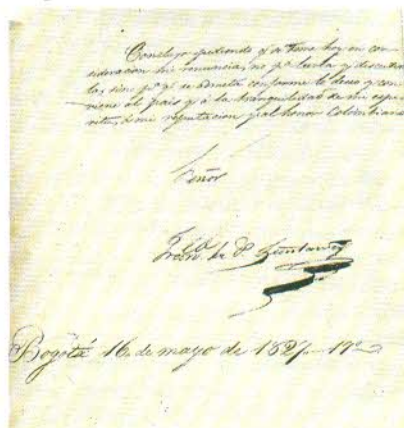 Concluyo pidiendo q.e se tome hoy en con
sideracion mi renuncia, no p.a leerla y discutir
la, sino p.a q.e se admita conforme lo deseo y con
viene al pais y á la tranquilidad de mi espi
ritu, á mi reputacion y al honor Colombiano
Señor
Fran.co de P. Santander
Bogotá 16 de mayo de 1827.. 17.o